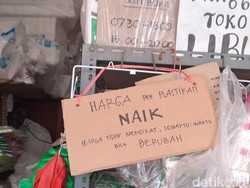 07.30-13.00
15.00-20.00
TOKO
LIBUR
HARGA PER PLASTIKAN
NAIK
HARGA TIDAK MENGIKAT, SEWAKTU-WAKTU
BISA BERUBAH
detikcom